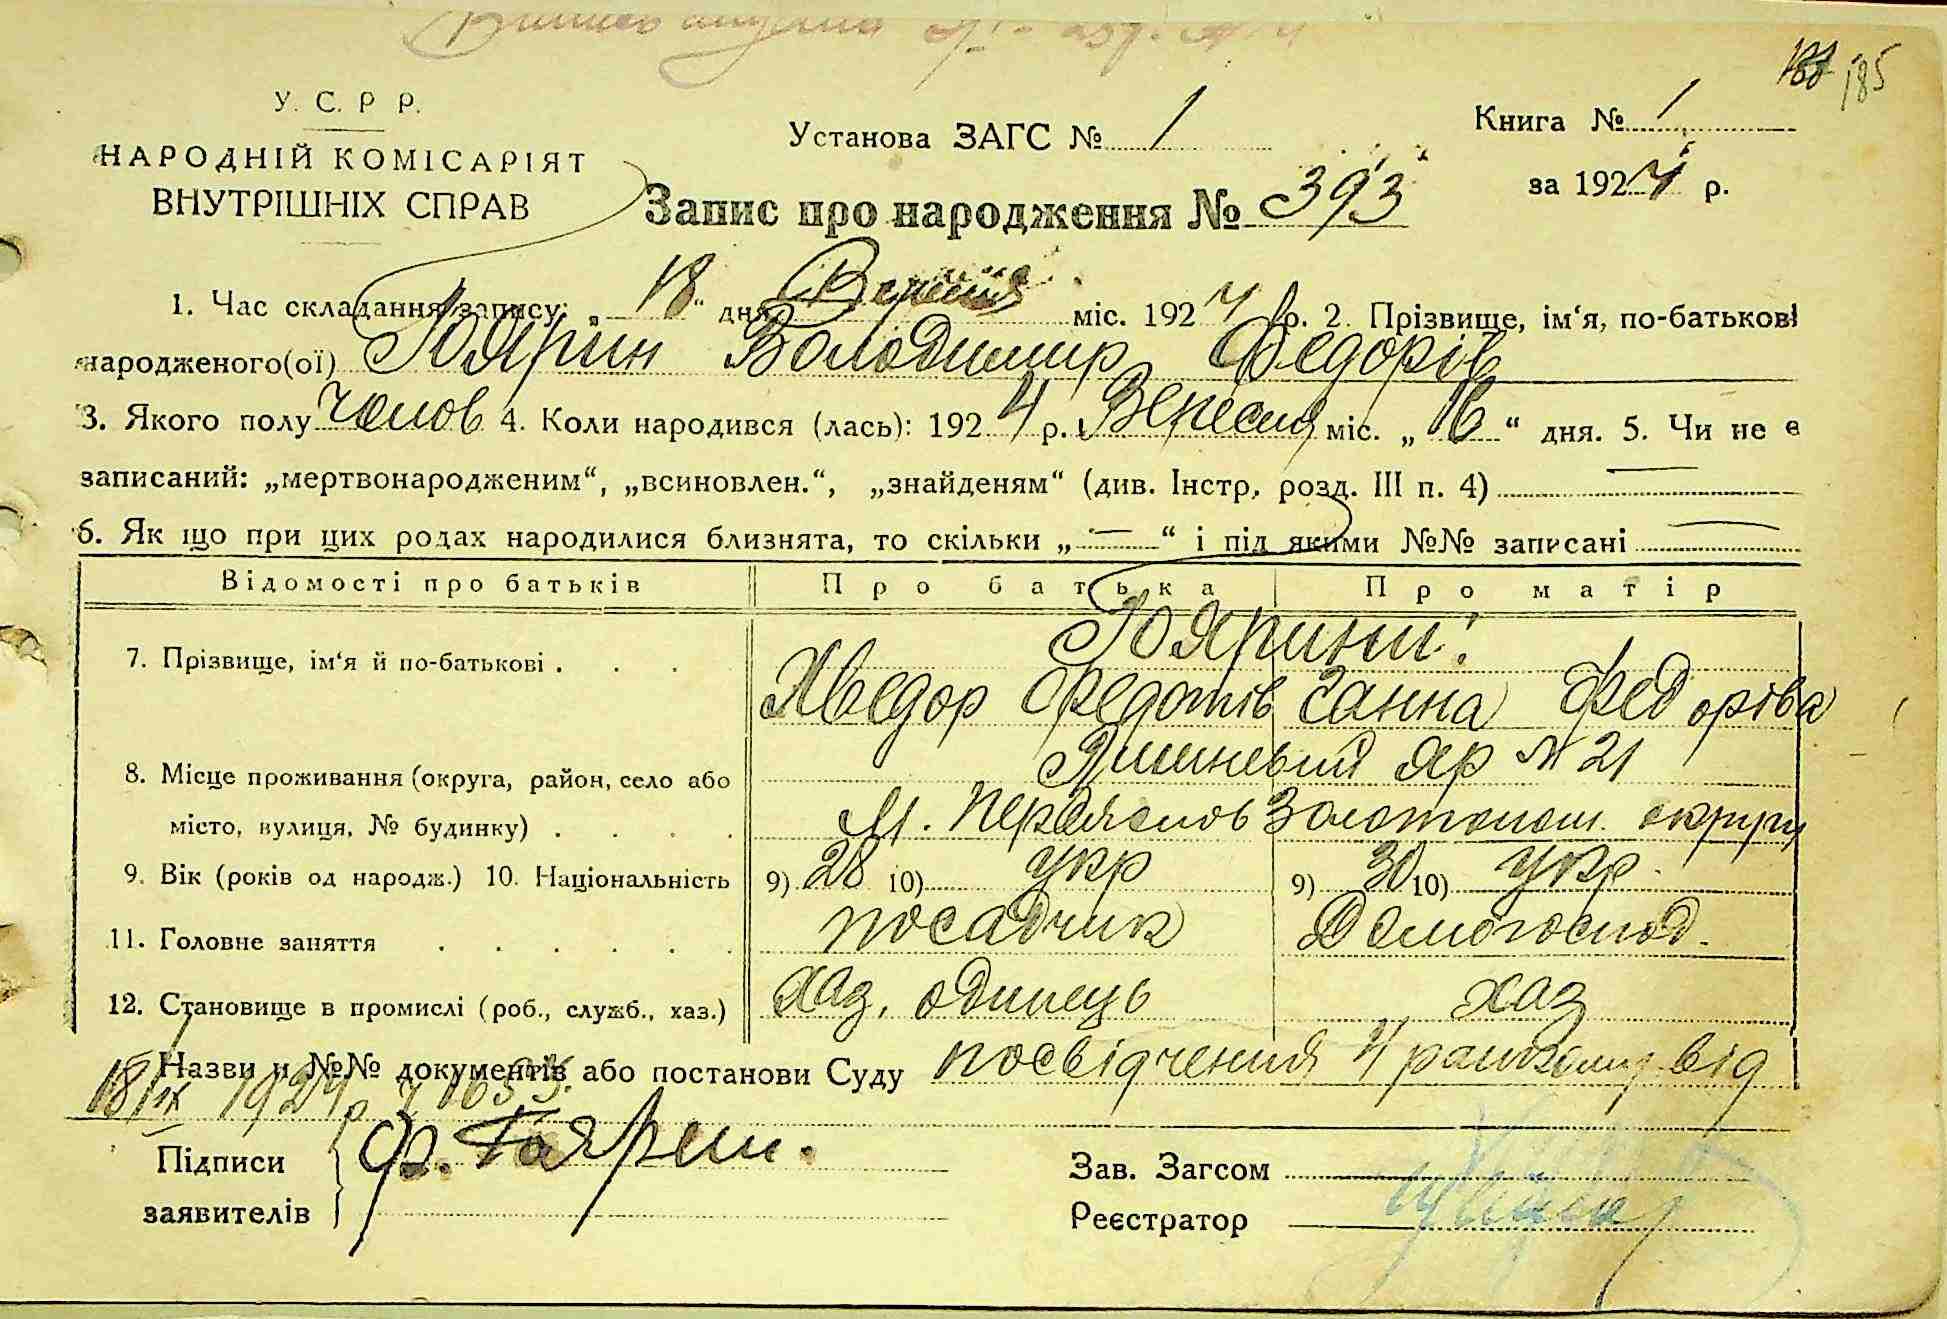 185
У. С. Р Р.
НАРОДНІЙ КОМІСАРІЯТ
ВНУТРІШНІХ СПРАВ
Установа ЗАГС № 1
Книга № 1
за 1924 р.
Запис про народження № 393
1. Час складання запису: „ 18 " дня Вересня міс. 1924 р. 2. Прізвище, ім'я, по-батькові
народженого(ої) Гоярин Володимир Федорів
3. Якого полу чолов 4. Коли народився (лась): 1924 р. Вересня міс. „ 16 " дня. 5. Чи не є
записаний: „мертвонародженим", „всиновлен.", „знайденям" (див. Інстр, розд. III п. 4) —
6. Як що при цих родах народилися близнята, то скільки „ — " і під якими №№ записані —
Відомості про батьків Про батька Про матір
7. Прізвище, ім'я й по-батькові . . . Гоярини:
Хведор Федотів Ганна Федорівна
8. Місце проживання (округа, район, село або Яр № 21
місто, вулиця, № будинку) . . . . М. Переяслов Золотонош. округи
9. Вік (років од народж.) 10. Національність 9) 28 10) укр 9) 30 10) укр.
11. Головне заняття . . . . . посадчик Домогоспод.
12. Становище в промислі (роб., служб., хаз.) хаз, одинець хаз
Назви и №№ документів або постанови Суду посвідчення 4 райкому від
18/IX 1924 р
Підписи
заявителів
Ф. Гоярин.
Зав. Загсом
Реєстратор